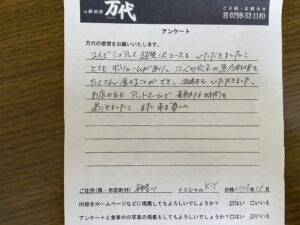 万代
ご予約・お問合せ
0799-52-1140
アンケート
万代の感想をお願いいたします。
2人でシェアして 贅沢コースを いただきました。
とても ボリュームがあり、
たくさん 食べることができ、 いただきました。
お店の方も アットホームで 素敵な時間を
過ごせました! また 来ます
ご住所(県・市区町村) 神奈川 イニシャル K・Y 日時 2023年11月
内容をホームページなどに掲載してもよろしいでしょうか? ☑はい □いいえ
アンケートと食事中の写真の掲載もしてもよろしいでしょうか? ☑はい □いいえ